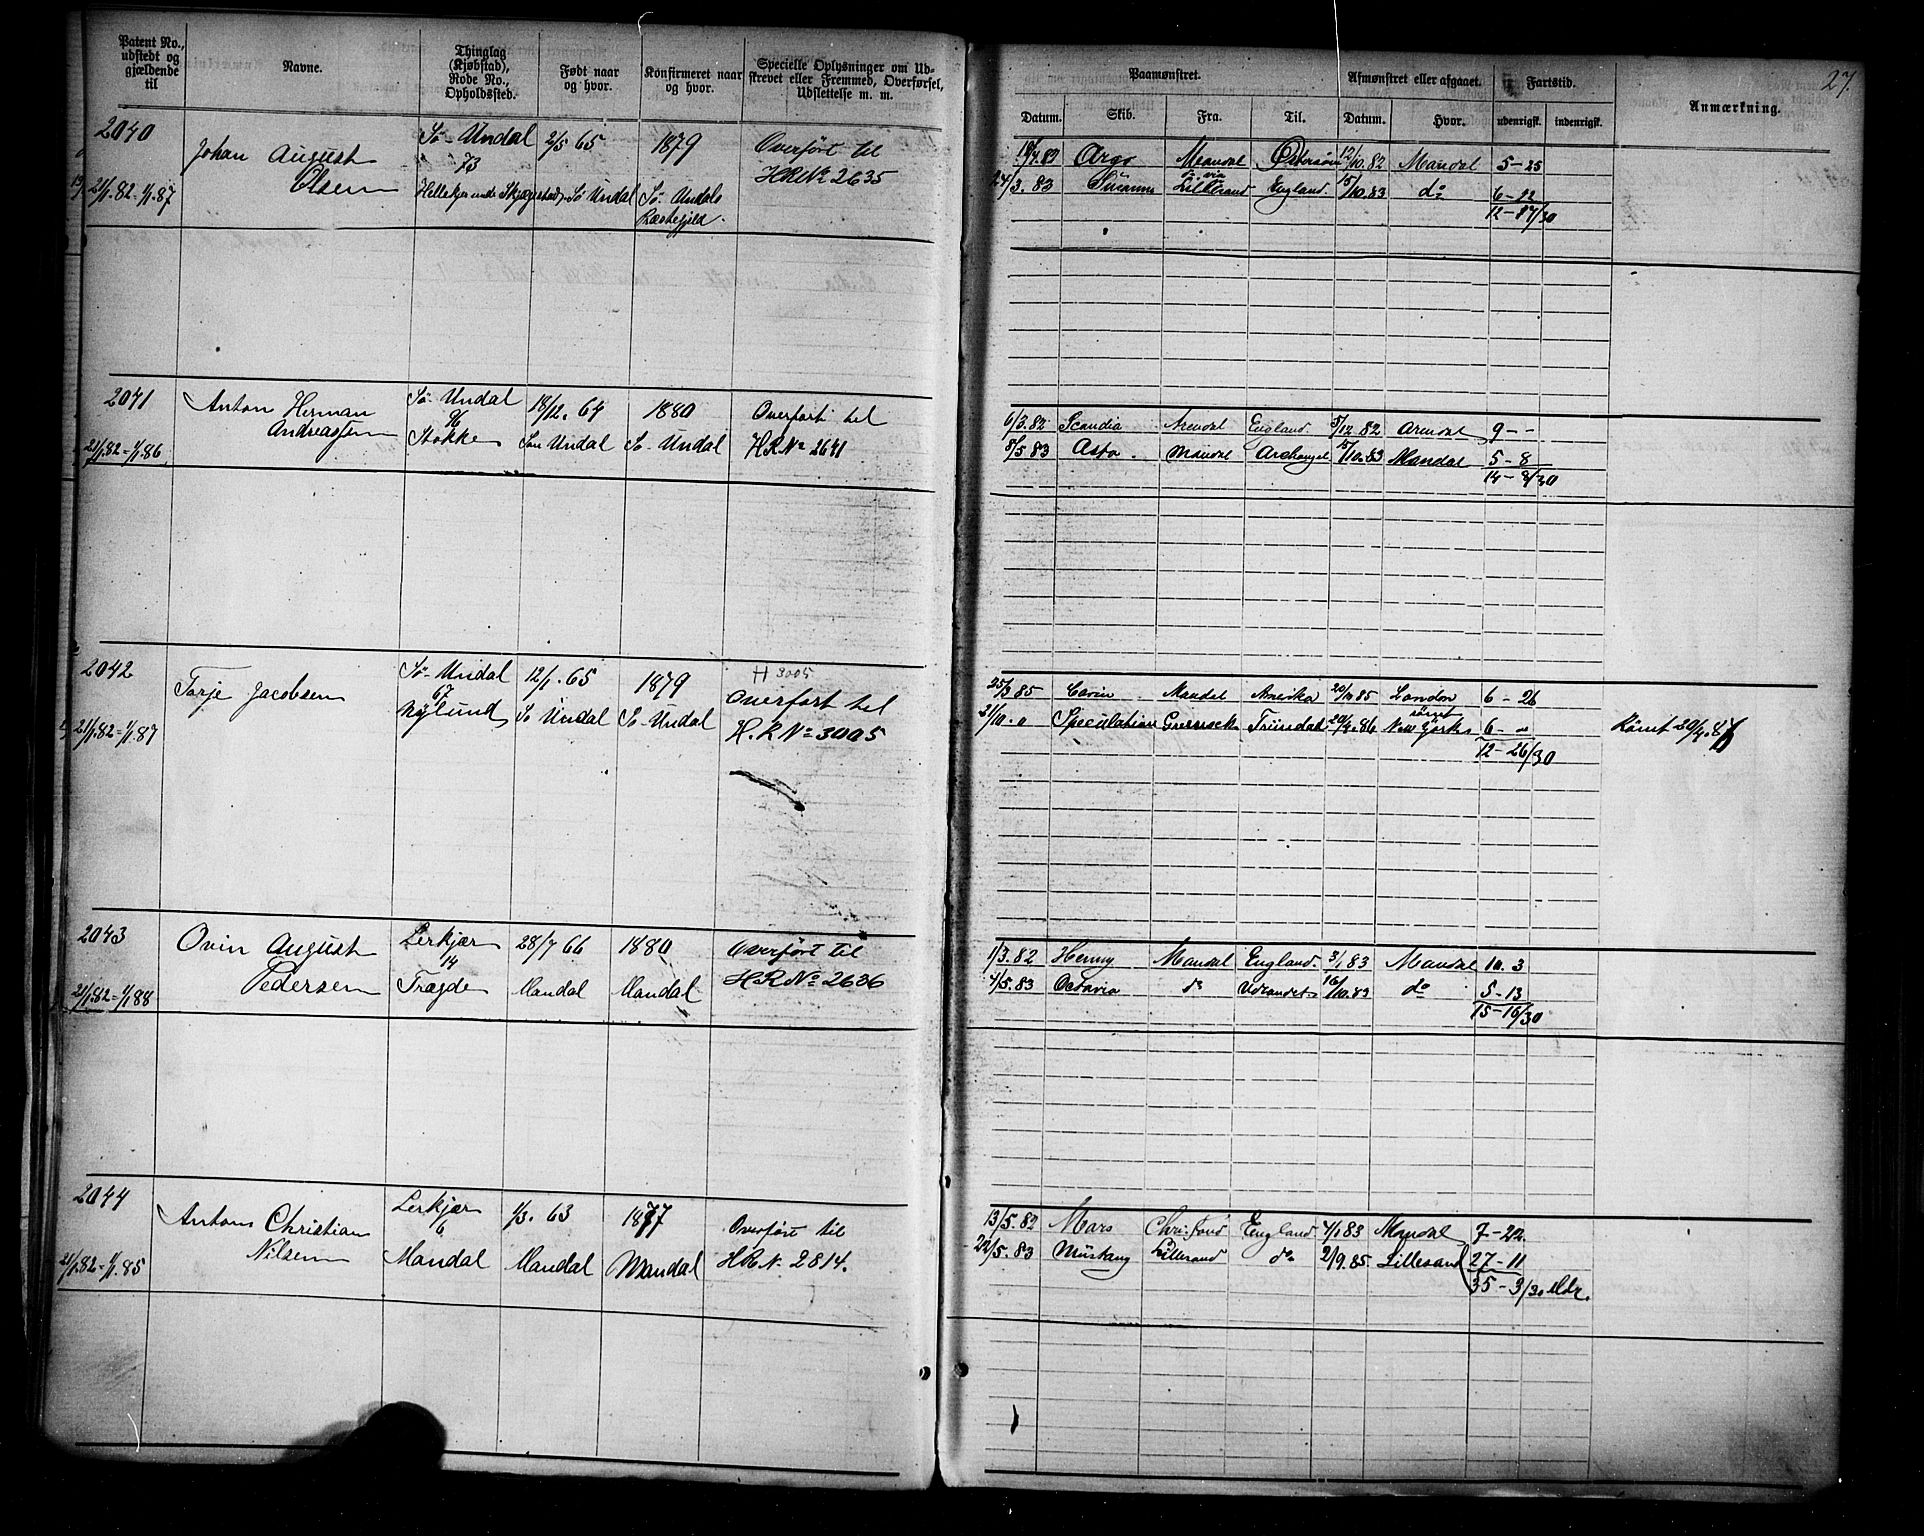 Patent No., udstedt og gjældende til
Navne.
Thinglag (Kjøbstad), Rode No., Opholdssted.
Født naar og hvor.
Konfirmeret naar og hvor.
Specielle Oplysninger om Udskrevet eller Fremmed, Overførsel, Udslettelse m. m.
Paamønstret.
Afmønstret eller afgaaet.
Fartstid.
Anmærkning.
27.
Datum. Skib. Fra. Til. Datum. Hvor. udenrigsk. indenrigsk.
2040
Johan August
Olsen
Sö-Undal 2/5 65 1879 Overført til
73 HRNo 2635
21/1.82-1/1.87 Sö Undal Sö-Undals
Argo Mandal Østersöen 12/10.82 Mandal 5-25
via
3.83 Lillesand England 15/10.83 do 6-22
12-17/30
2041
Anton Herman
Andreassen
Sö-Undal 18/12.64 1880 Overført til
96
21/1.82-1/1.86 Stokke Sö-Undal HRNo 2641
6/3.82 Scandia Arendal England 5/12.82 Arendal 9 - -
8/5.83 Asta Mandal Archangel 15/10.83 Mandal 5-8
14-8/30
2042
Tarje Jacobsen
Sö-Undal 12/1.65 1879 H 3005
67 Overført til
21/1.82-1/1.87 Nylund Sö Undal Sö-Undal H.R No 3005
25/3.85 Carin Mandal Amerika 20/10.85 London 6-26
römt
21/10.. Speculation Trinidad 20/4.86 New York 6 - "
12-26/30
Römt 20/4.86
2043
Ovin August
Pedersen
Lerkjær 28/7 66 1880 Overført til
14
21/1.82-1/1.88 Tragde Mandal Mandal HRNo 2636
1/3.82 Henny Mandal England 3/1.83 Mandal 10.3
4/5.83 Octavia do Udlandet 16/10.83 do 5-13
15-16/30
2044
Anton Christian
Nilsen
Lerkjær 1/3.63 1877 Overført til
6
21/1.82-1/1.85 Mandal Mandal Mandal HR No 2814.
13/5.82 Mars England 4/1 83 Mandal 7-22.
22/5.83 Mustang Lillesand do 2/9.85. Lillesand 27-11
35-3/30 Mdr.